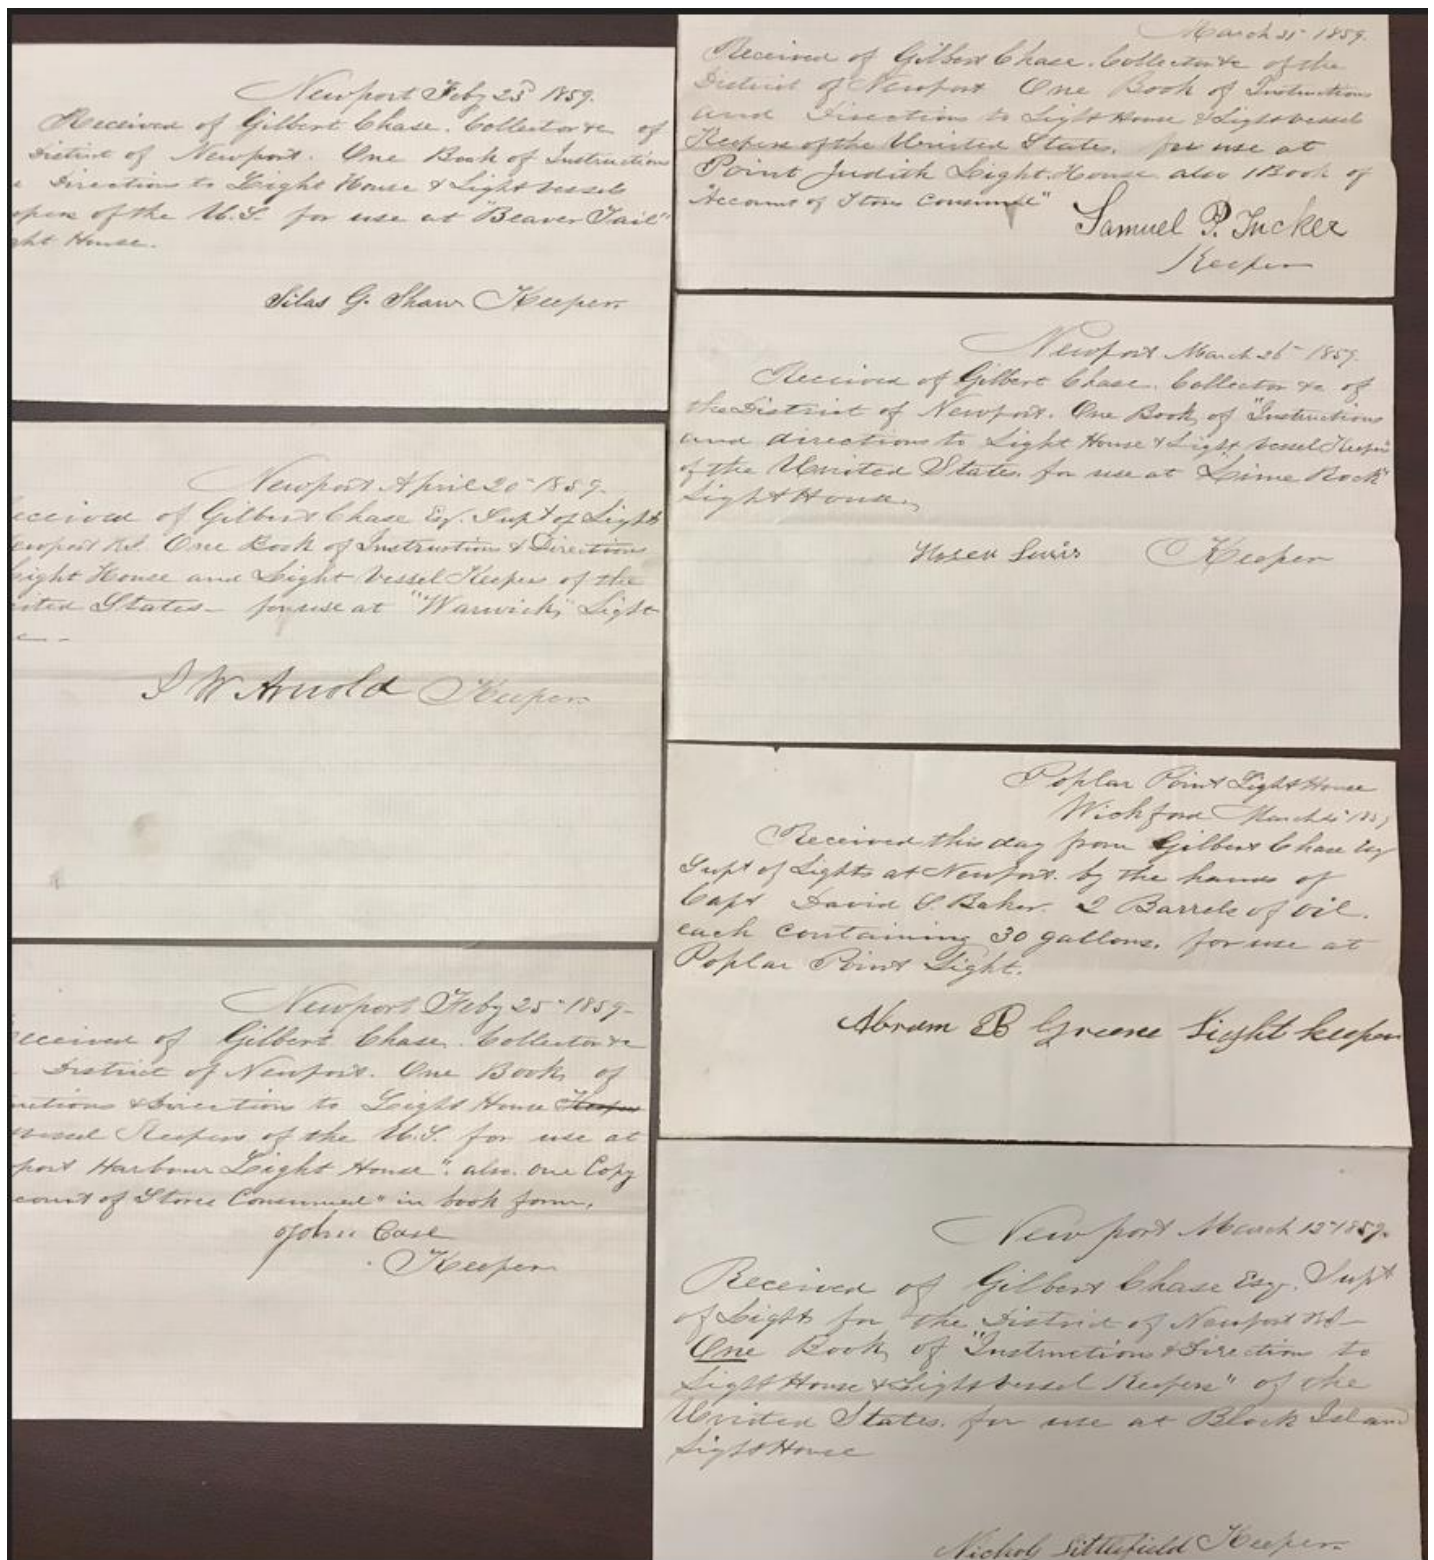 Newport Feby 25 1859.
Received of Gilbert Chase. Collector &c of
District of Newport. One Book of Instructions
Directions to Light House & Light vessels
of the U.S. for use at "Beaver Tail"
ght House.
Silas G. Shaw Keeper.
Newport April 20 1859.
eceived of Gilbert Chase Esq. Supt of Light
ewport R.I. One Book of Instructions & Directions
Light House and Light Vessel Keepers of the
ited States - for use at "Warwick" Light
S W Arnold Keeper.
Newport Feby 25 - 1859 -
eceived of Gilbert Chase. Collector &c
District of Newport. One Book of
uctions & Direction to Light House Keeper
vessel Keepers of the U.S. for use at
port Harbour Light House". also. one Copy
count of Stores Consumed" in book form.
John Case
Keeper
March 1859.
Received of Gilbert Chase. Collector &c of the
District of Newport One Book of Instructions
and Directions to Light House & Light vessel
Keepers of the United States. for use at
Point Judith Light House also 1 Book of
"Account of Stores Consumed"
Samuel P. Tucker
Keeper
Newport March 26 1859.
Received of Gilbert Chase. Collector &c of
the District of Newport. One Book of "Instructions
and directions to Light House & Light vessel Keepers
of the United States. for use at Lime Rock"
Light House.
Hosea Lewis Keeper
Poplar Point Light House
Wickford March
Received this day from Gilbert Chase Esq
Supt of Lights at Newport. by the hands of
Capt David S. Baker. 2 Barrels of oil.
each containing 30 gallons. for use at
Poplar Point Light.
Abram B Greene Light keeper
Newport March 12 1859.
Received of Gilbert Chase Esq. Supt
of Light for the District of Newport R.I -
One Book of "Instructions & Direction to
Light House & Light vessel Keepers" of the
United States. for use at Block Island
Light House
Nichols Littlefield Keeper.